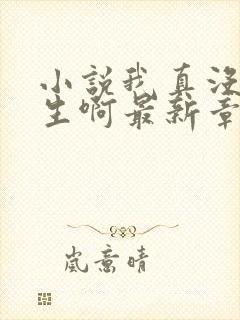 小说我真没
生啊最新章
岚意晴